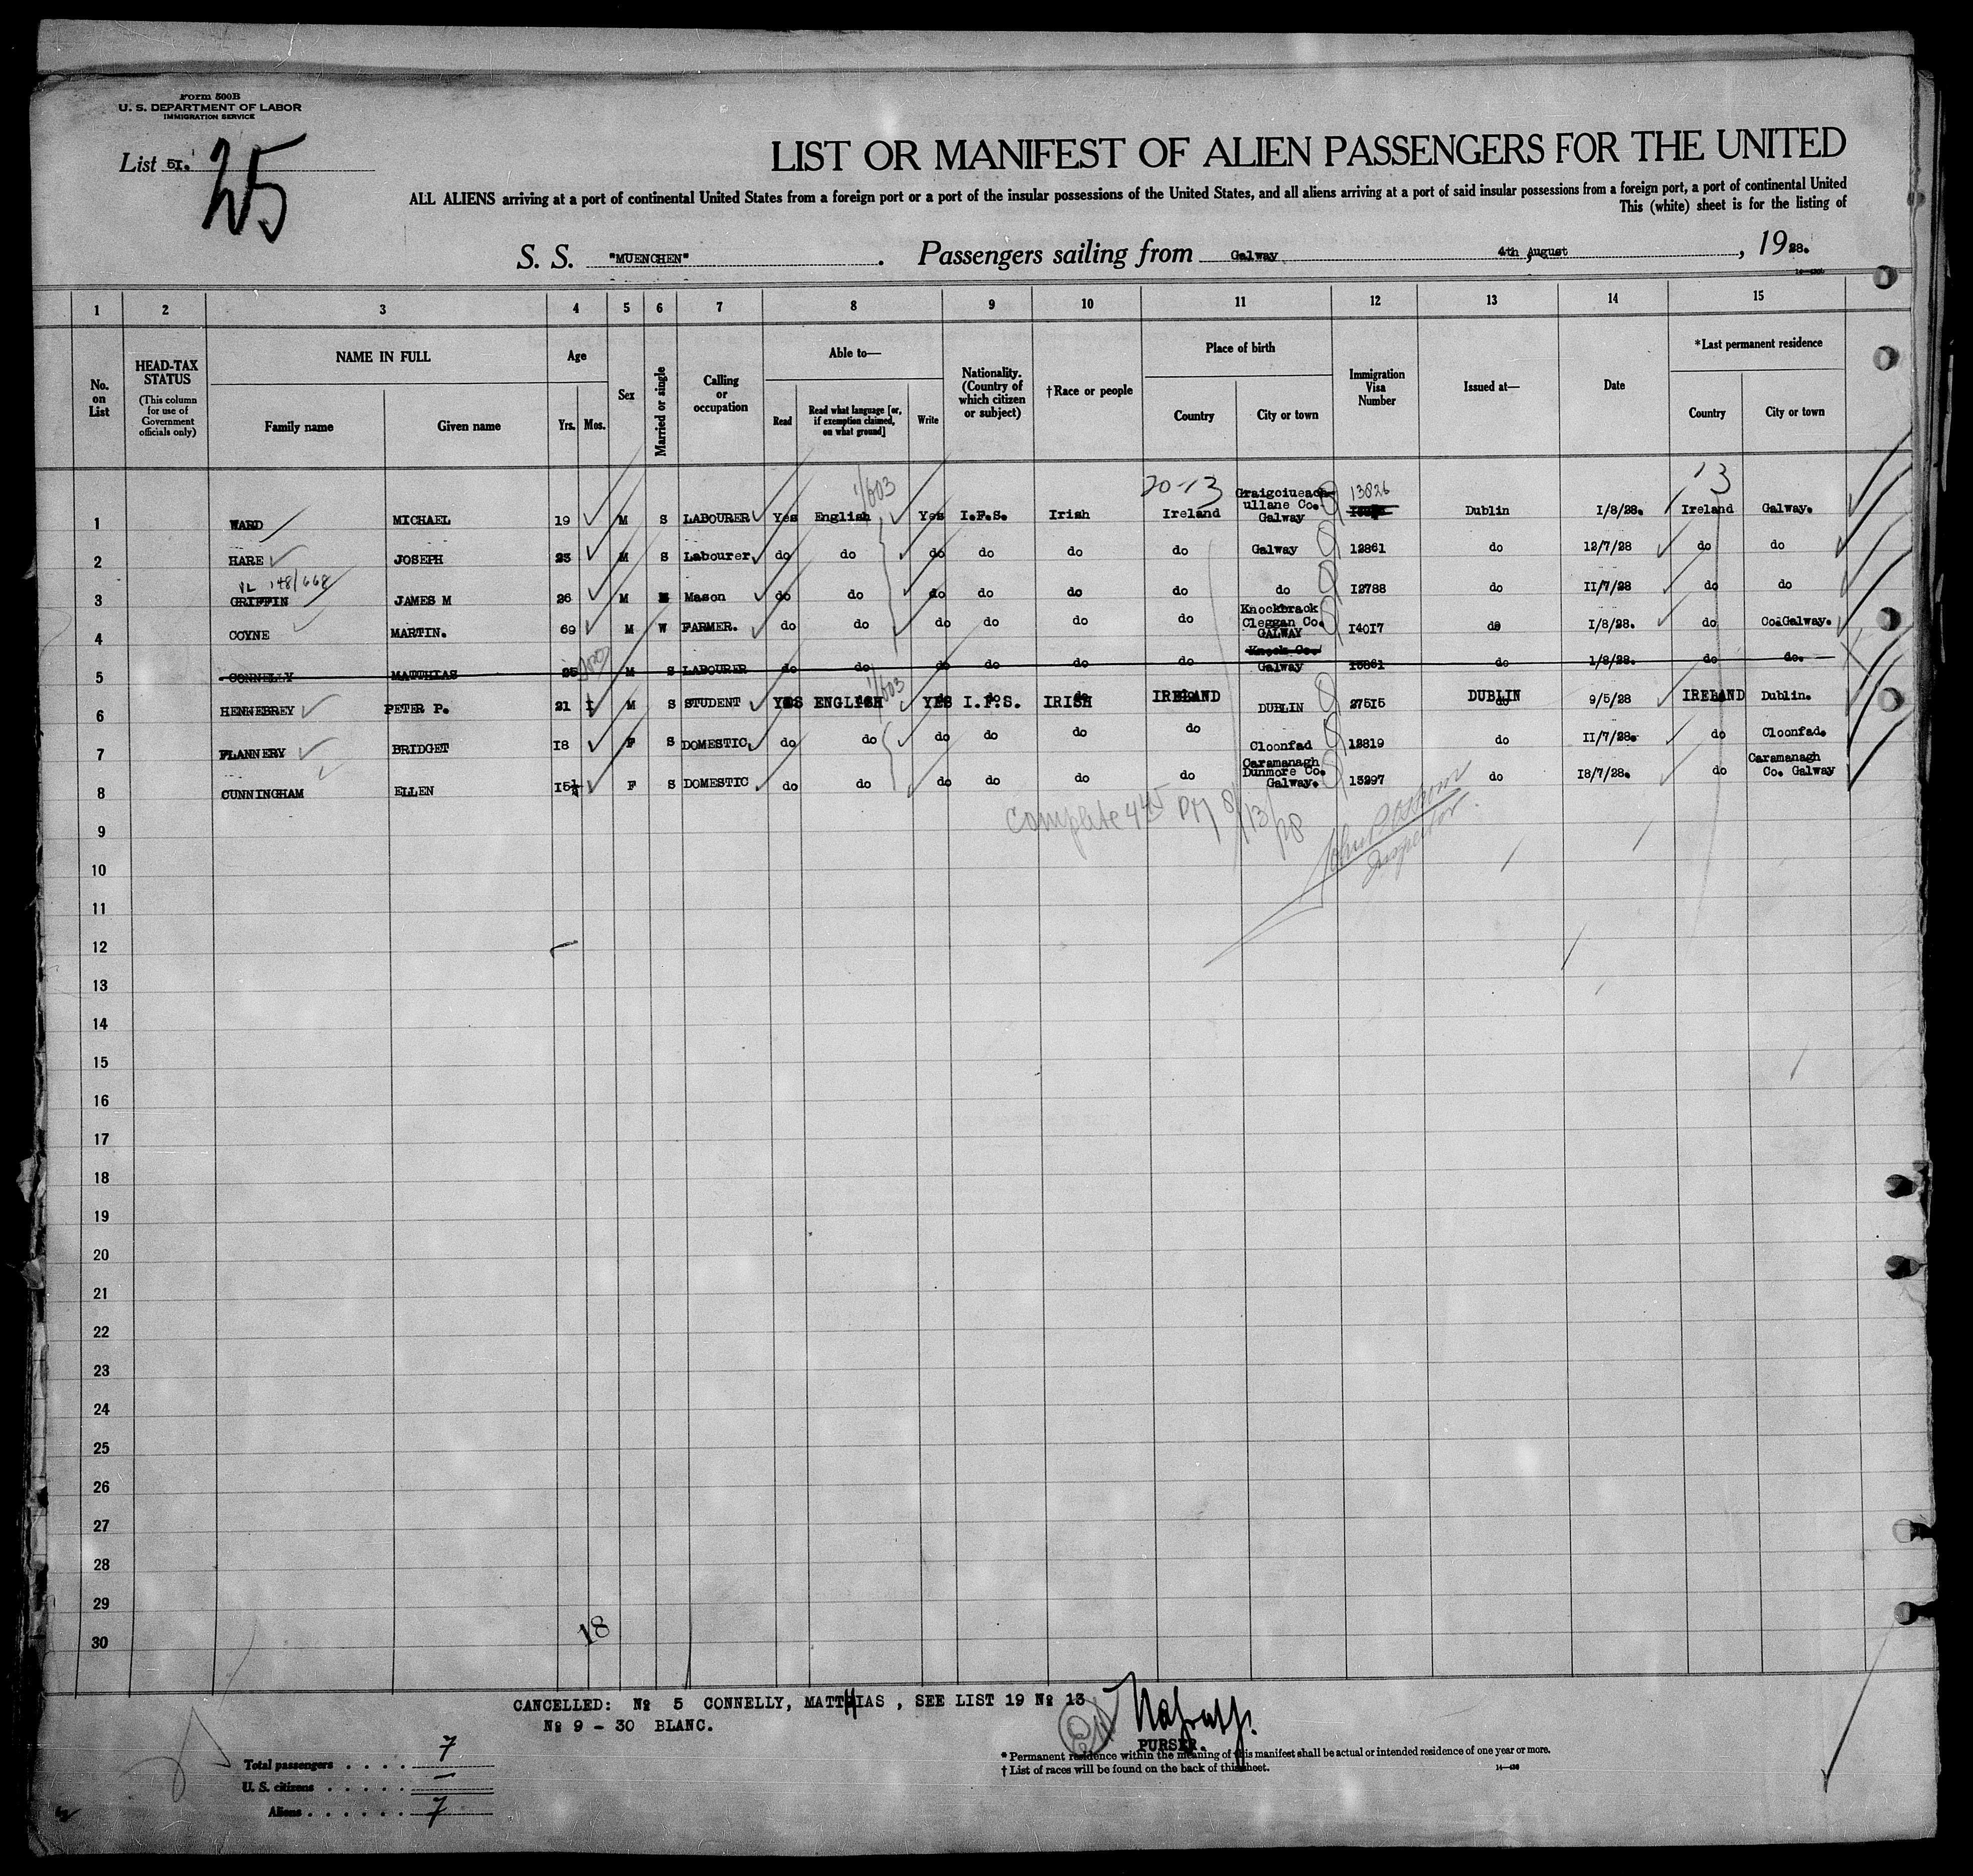 Form 500B
U. S. DEPARTMENT OF LABOR
IMMIGRATION SERVICE
List 51.
25
LIST OR MANIFEST OF ALIEN PASSENGERS FOR THE UNITED
ALL ALIENS arriving at a port of continental United States from a foreign port or a port of the insular possessions of the United States, and all aliens arriving at a port of said insular possessions from a foreign port, a port of continental United
This (white) sheet is for the listing of
S. S. "MUENCHEN" . Passengers sailing from Galway 4th August , 1928.
1 2 3 4 5 6 7 8 9 10 11 12 13 14 15
No. on List
HEAD-TAX STATUS (This column for use of Government officials only)
NAME IN FULL
Family name Given name
Age
Yrs. Mos.
Sex
Married or single
Calling or occupation
Able to—
Read Read what language [or, if exemption claimed, on what ground] Write
Nationality. (Country of which citizen or subject)
† Race or people
Place of birth
Country City or town
Immigration Visa Number
Issued at—
Date
*Last permanent residence
Country City or town
1/603 20-13 13826 13
1 WARD MICHAEL 19 M S LABOURER Yes English Yes I.F.S. Irish Ireland ullane Co. Galway Dublin 1/8/28. Ireland Galway.
2 HARE JOSEPH 23 M S Labourer do do do do do do Galway 12861 do 12/7/28 do do
VL 148/668
3 GRIFFIN JAMES M 26 M Mason do do do do do do do 12788 do 11/7/28 do do
4 COYNE MARTIN. 69 M W FARMER. do do do do do do Knockbrack Cleggan Co. GALWAY 14017 do 1/8/28. do Co.Galway.
5 CONNELLY MATTHIAS 25 M S LABOURER do do do do do do Knock Co. Galway do 1/8/28. do do.
1/603
6 HENNEBREY PETER P. 21 M S STUDENT YES ENGLISH YES I.F.S. IRISH IRELAND DUBLIN 27515 DUBLIN 9/5/28 IRELAND Dublin.
7 FLANNERY BRIDGET 18 F S DOMESTIC do do do do do do Cloonfad 12819 do 11/7/28. do Cloonfad.
8 CUNNINGHAM ELLEN 15½ F S DOMESTIC do do do do do do Caramanagh Dunmore Co. Galway. 13297 do 18/7/28. do Caramanagh Co. Galway
Complete 445 PM 8/13/28
Inspector
9
10
11
12
13
14
15
16
17
18
19
20
21
22
23
24
25
26
27
28
29
30
18
CANCELLED: № 5 CONNELLY, MATTHIAS , SEE LIST 19 № 13
№ 9 - 30 BLANC.
PURSER.
Total passengers . . . . 7
U. S. citizens . . . . . —
Aliens . . . . . . 7
* Permanent residence within the meaning of this manifest shall be actual or intended residence of one year or more.
† List of races will be found on the back of this sheet.